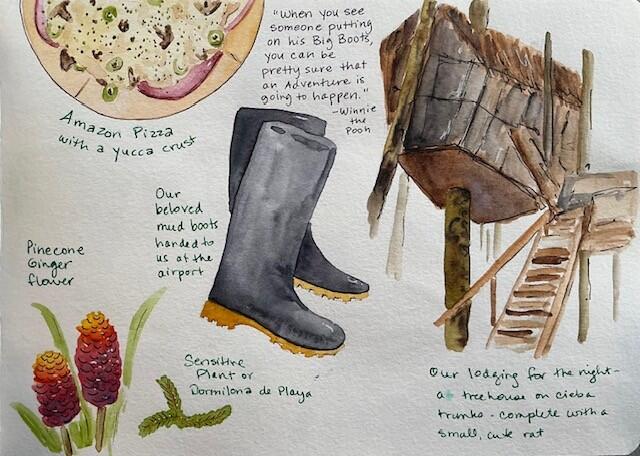 "When you see
someone putting
on his Big Boots,
you can be
pretty sure that
an Adventure is
going to happen."
- Winnie
the
Pooh
Amazon Pizza
with a yucca crust
Our
beloved
mud boots
handed to
us at the
airport
Pinecone
Ginger
flower
Sensitive
Plant or
Dormilona de Playa
Our lodging for the night-
a treehouse on cieba
trunks - complete with a
small, cute rat